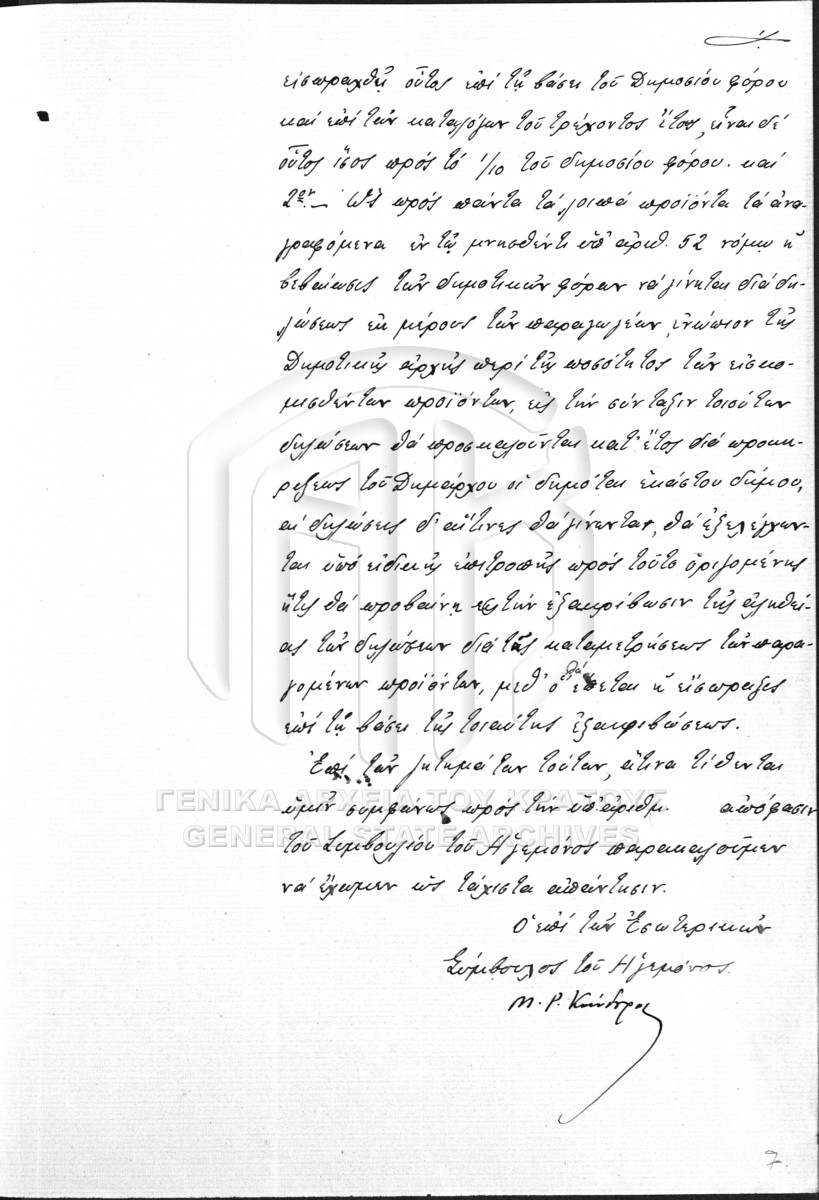 εἰσπραχθῇ οὗτος ἐπί τῇ βάσει τοῦ Δημοσίου φόρου
καί ἐπί τῶν καταλόγων τοῦ τρέχοντος ἔτους, εἶναι δέ
οὗτος ἴσος πρός τό 1/10 τοῦ δημοσίου φόρου. καί
2ον_ Ὡς πρός πάντα τά λοιπά προϊόντα τά ἀνα-
γραφόμενα ἐν τῷ μνησθέντι ὑπ' ἀριθ. 52 νόμῳ ἡ
βεβαίωσις τῶν δημοτικῶν φόρων νά γίνηται διά δη-
λώσεως ἐκ μέρους τῶν παραγωγέων, ἐνώπιον τῆς
Δημοτικῆς ἀρχῆς περί τῆς ποσότητος τῶν εἰσκο-
μισθέντων προϊόντων, εἰς τήν σύνταξιν τοιούτων
δηλώσεων θά προσκαλοῦνται κατ' ἔτος διά προκη-
ρύξεως τοῦ Δημάρχου οἱ δημόται ἑκάστου δήμου,
αἱ δηλώσεις δ' αἵτινες θά γίνωνται, θά ἐξελέγχων-
ται ὑπό εἰδικῆς ἐπιτροπῆς πρός τοῦτο ὁριζομένης
ἥτις θά προβαίνῃ εἰς τήν ἐξακρίβωσιν τῆς ἀληθεί-
ας τῶν δηλώσεων διά τῆς καταμετρήσεως τῶν παρα-
γομένων προϊόντων, μεθ' ὅ θά ἕπεται ἡ εἴσπραξις
ἐπί τῇ βάσει τῆς τοιαύτης ἐξακριβώσεως.
Ἐπί τῶν ζητημάτων τούτων, ἅτινα τίθενται
ὑμῖν συμφώνως πρός τήν ὑπ' ἀριθμ. ἀπόφασιν
τοῦ Συμβουλίου τοῦ Ἡγεμόνος παρακαλοῦμεν
νά ἔχωμεν ὡς τάχιστα ἀπάντησιν.
Ὁ ἐπί τῶν Ἐσωτερικῶν
Σύμβουλος τοῦ Ἡγεμόνος.
Μ. Ρ. Κούνδουρος
ΓΕΝΙΚΑ ΑΡΧΕΙΑ ΤΟΥ ΚΡΑΤΟΥΣ
GENERAL STATE ARCHIVES
7.